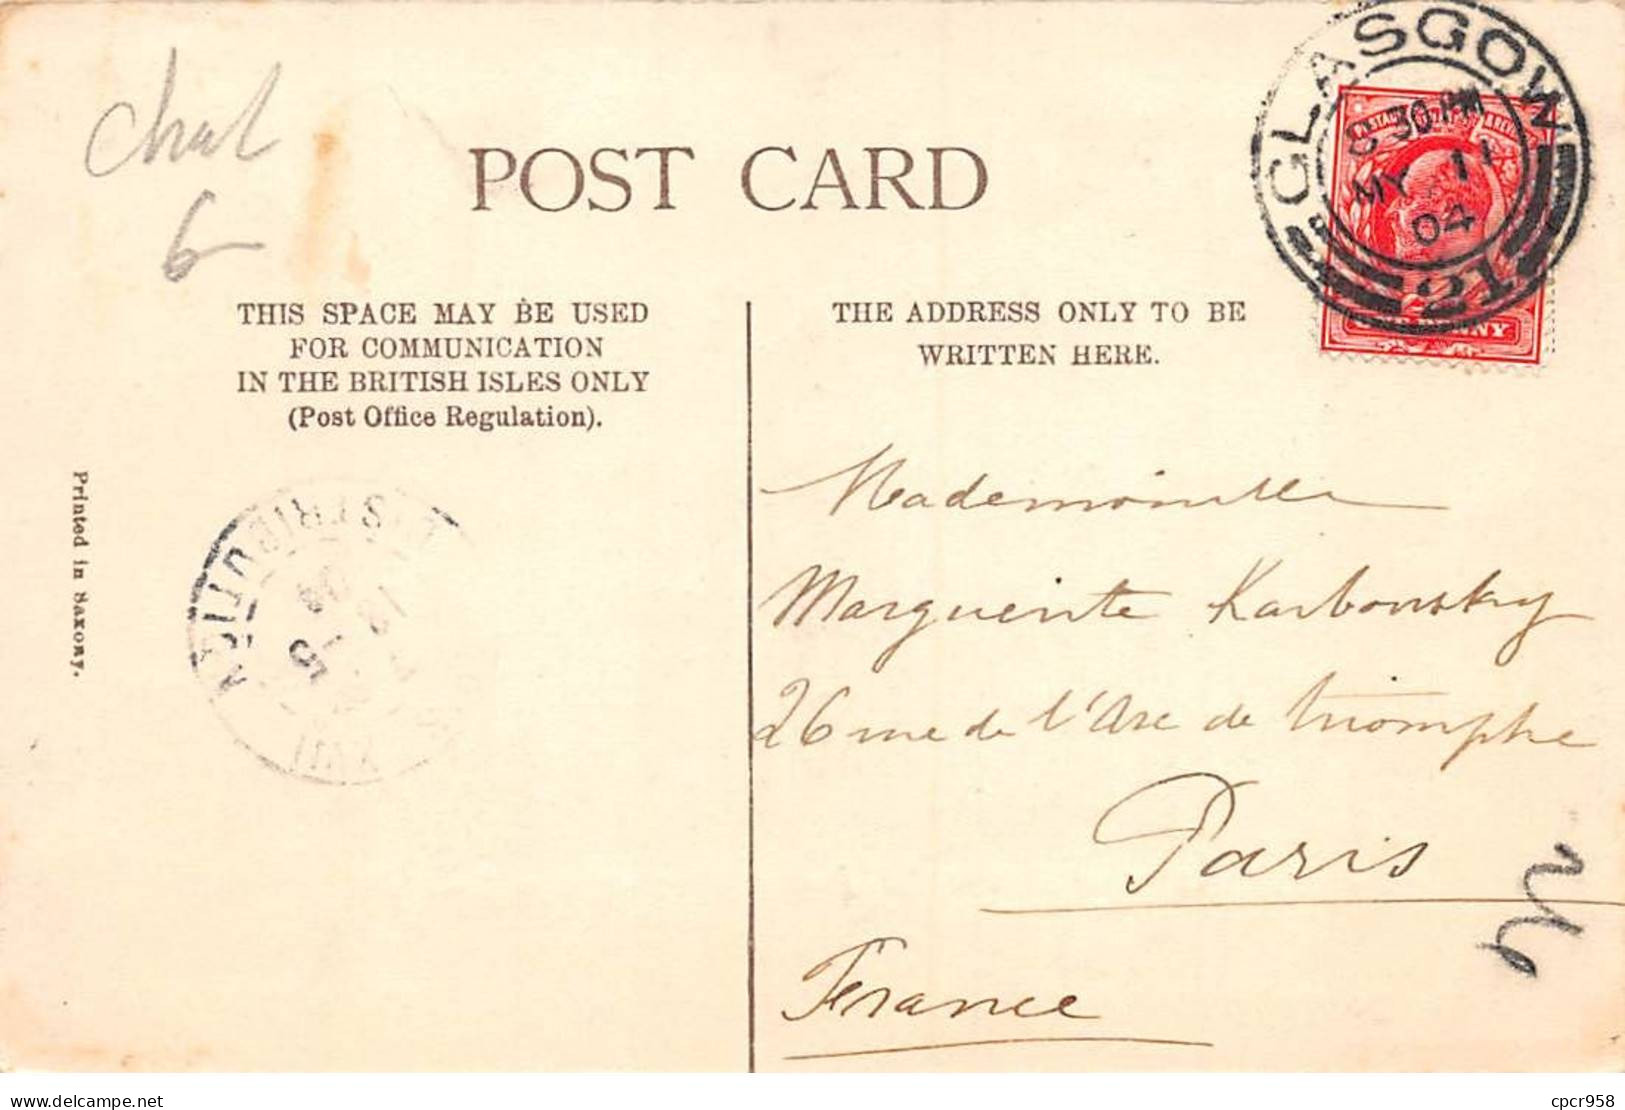 chat
6
POST CARD
GLASGOW
8 30 PM
MY 11
04
21
ONE PENNY
THIS SPACE MAY BE USED
FOR COMMUNICATION
IN THE BRITISH ISLES ONLY
(Post Office Regulation).
THE ADDRESS ONLY TO BE
WRITTEN HERE.
Printed in Saxony.
DISTRIBUTION
XVII
Mademoiselle
Marguerite Karbonsky
26 rue de l'Arc de triomphe
Paris
France
delcampe.net
cpcr958